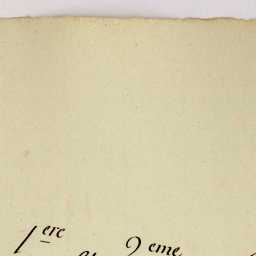 1ere 2eme